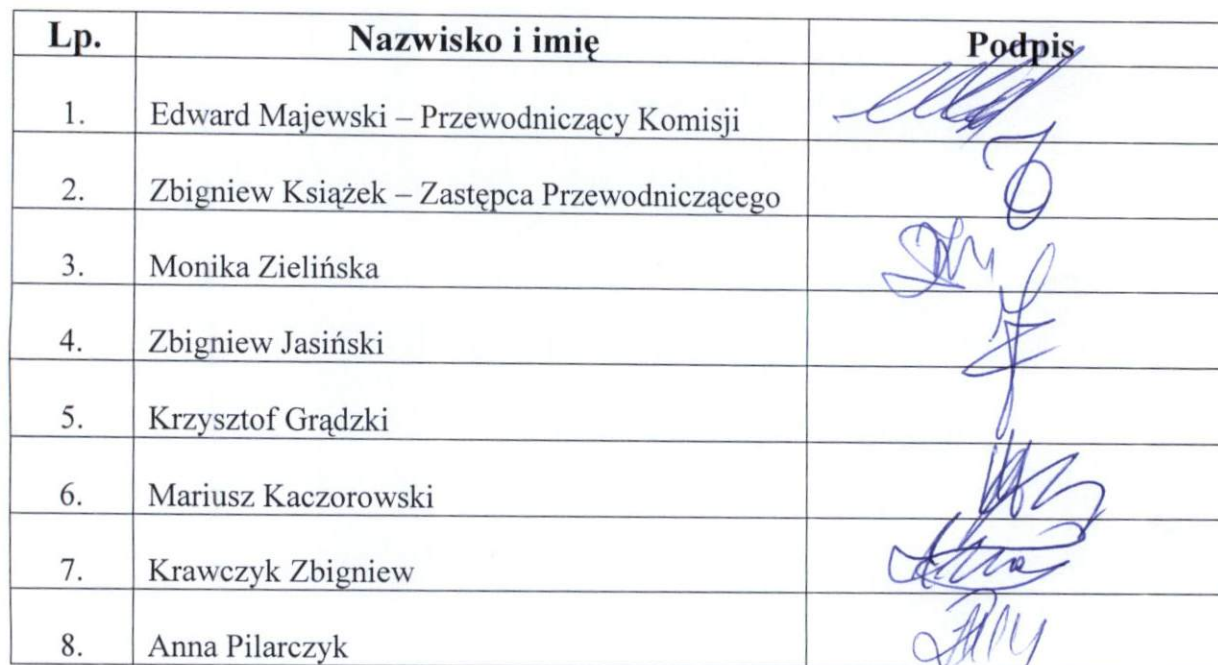 Lp. Nazwisko i imię Podpis
1. Edward Majewski – Przewodniczący Komisji
2. Zbigniew Książek – Zastępca Przewodniczącego
3. Monika Zielińska
4. Zbigniew Jasiński
5. Krzysztof Grądzki
6. Mariusz Kaczorowski
7. Krawczyk Zbigniew
8. Anna Pilarczyk